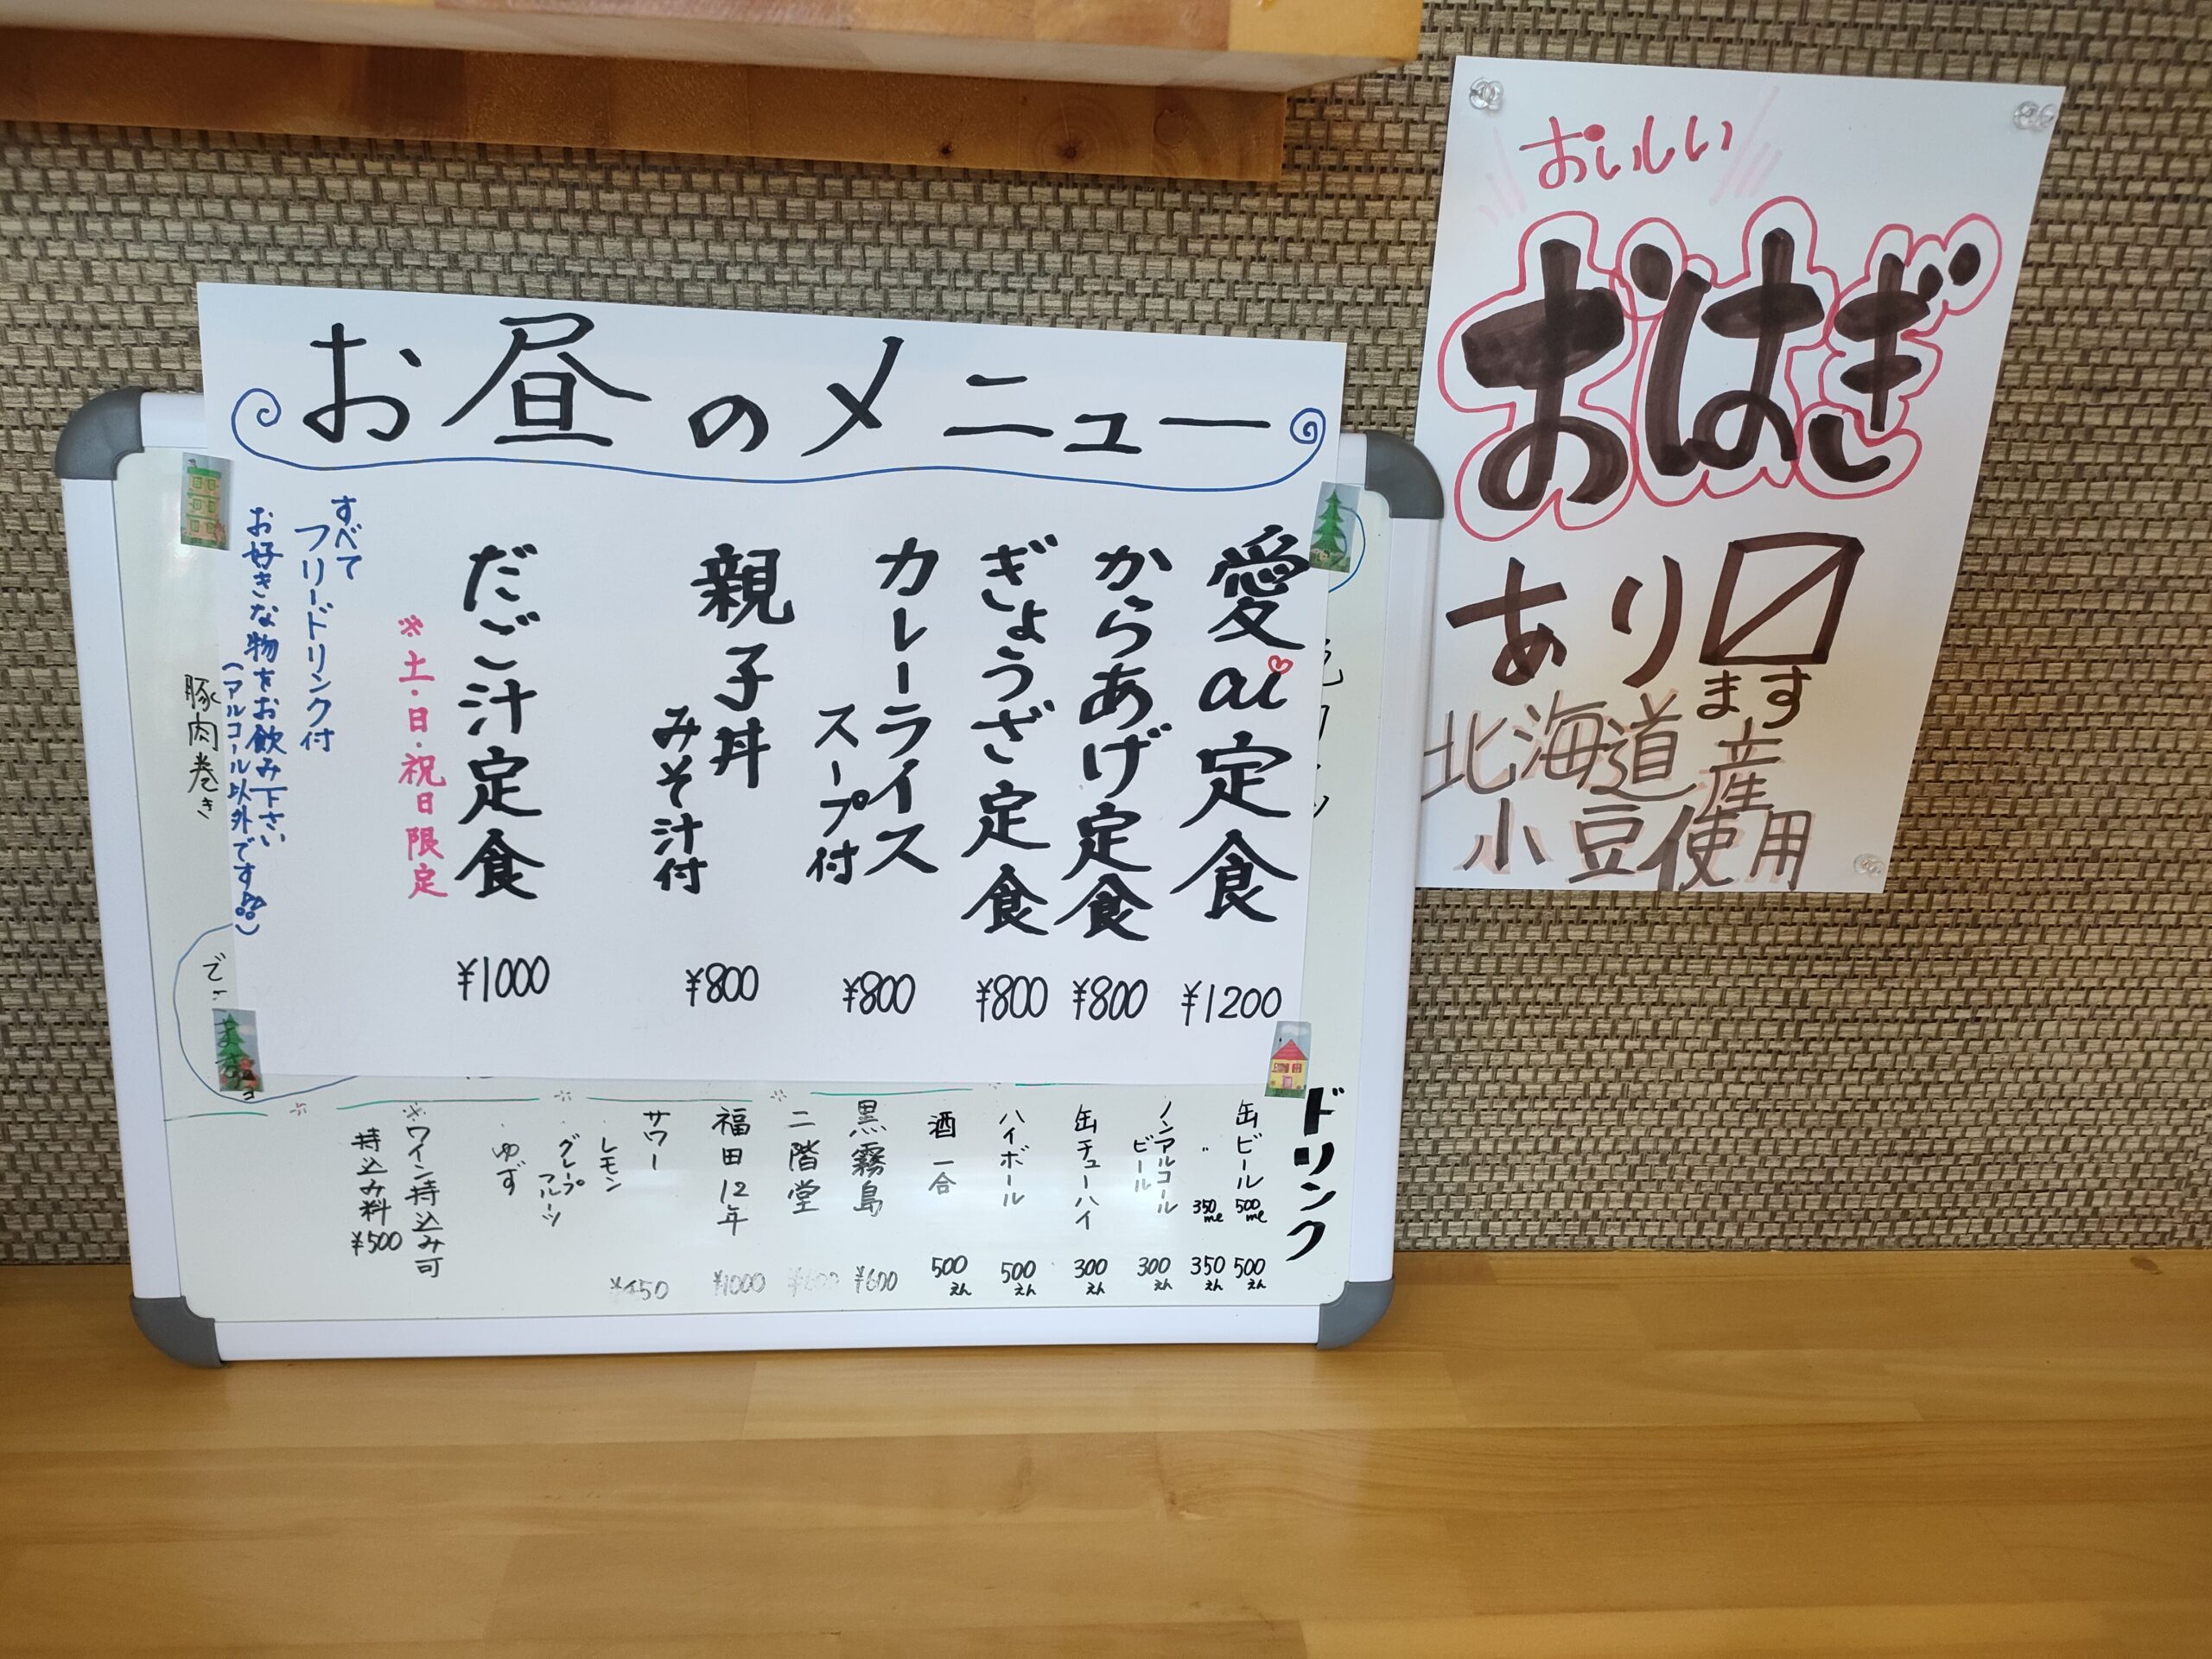 お昼のメニュー
愛ai定食 ¥1200
からあげ定食 ¥800
ぎょうざ定食 ¥800
カレーライス
スープ付 ¥800
親子丼
みそ汁付 ¥800
だご汁定食 ¥1000
※土・日・祝日限定
すべて
フリードリンク付
お好きな物をお飲み下さい
(アルコール以外です)
豚肉巻き
ドリンク
缶ビール 500ml 500えん
〃 350ml 350えん
ノンアルコール
ビール 300えん
缶チューハイ 300えん
ハイボール 500えん
酒一合 500えん
黒霧島 ¥600
二階堂 ¥600
福田12年 ¥1000
サワー ¥450
レモン
グレープ
フルーツ
ゆず
※ワイン持込み可
持込み料 ¥500
おいしい
おはぎ
あり〼
ます
北海道産
小豆使用